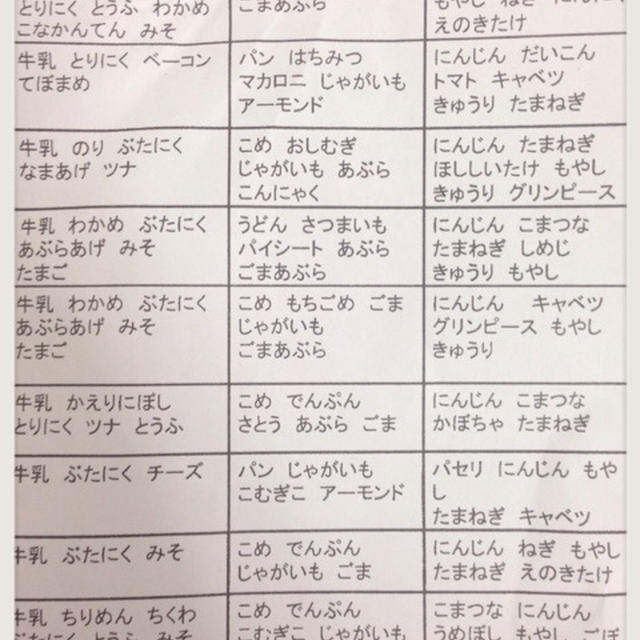 とりにく とうふ わかめ
こなかんてん みそ
ごまあぶら
もやし ねぎ にんにく
えのきたけ
牛乳 とりにく ベーコン
てぼまめ
パン はちみつ
マカロニ じゃがいも
アーモンド
にんじん だいこん
トマト キャベツ
きゅうり たまねぎ
牛乳 のり ぶたにく
なまあげ ツナ
こめ おしむぎ
じゃがいも あぶら
こんにゃく
にんじん たまねぎ
ほししいたけ もやし
きゅうり グリンピース
牛乳 わかめ ぶたにく
あぶらあげ みそ
たまご
うどん さつまいも
パイシート あぶら
ごまあぶら
にんじん こまつな
たまねぎ しめじ
きゅうり もやし
牛乳 わかめ ぶたにく
あぶらあげ みそ
たまご
こめ もちごめ ごま
じゃがいも
ごまあぶら
にんじん キャベツ
グリンピース もやし
きゅうり
牛乳 かえりにぼし
とりにく ツナ とうふ
こめ でんぷん
さとう あぶら ごま
にんじん こまつな
かぼちゃ たまねぎ
牛乳 ぶたにく チーズ
パン じゃがいも
こむぎこ アーモンド
パセリ にんじん もや
し
たまねぎ キャベツ
牛乳 ぶたにく みそ
こめ でんぷん
じゃがいも ごま
にんじん ねぎ もやし
たまねぎ えのきたけ
牛乳 ちりめん ちくわ
ぶたにく とうふ みそ
こめ でんぷん
こむぎこ じゃがいも
こまつな にんじん
うめぼし もやし ごぼ